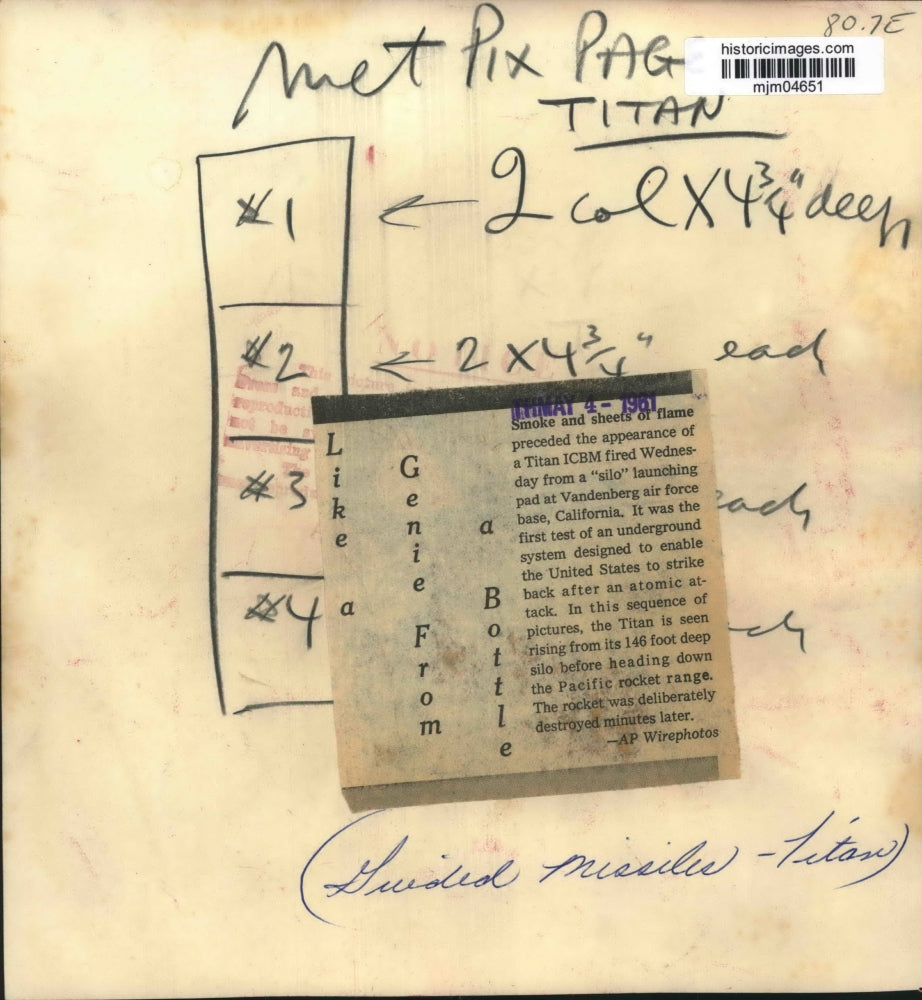 80.7E
historicimages.com
mjm04651
Met Pix PAG
TITAN
#1 ← 2 col X 4 3/4" deep
#2 ← 2 X 4 3/4" each
#3 each
#4
This picture
reproducti
not be
MAY 4 - 1961
Like a
Genie From
a Bottle
Smoke and sheets of flame
preceded the appearance of
a Titan ICBM fired Wednes-
day from a “silo” launching
pad at Vandenberg air force
base, California. It was the
first test of an underground
system designed to enable
the United States to strike
back after an atomic at-
tack. In this sequence of
pictures, the Titan is seen
rising from its 146 foot deep
silo before heading down
the Pacific rocket range.
The rocket was deliberately
destroyed minutes later.
—AP Wirephotos
(Guided Missiles - Titan)